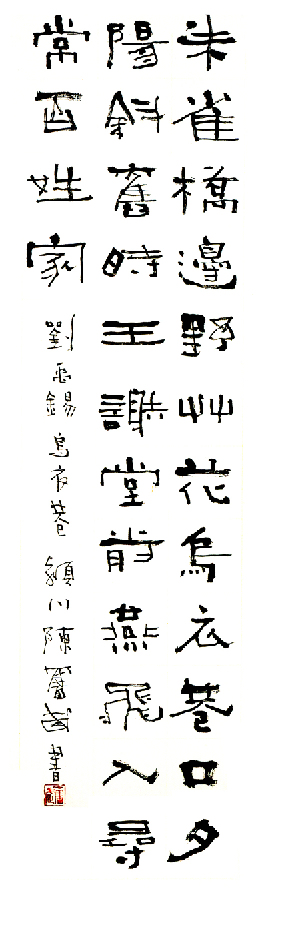 朱雀橋邊野艸花烏衣巷口夕
陽斜舊時王謝堂前燕飛入尋
常百姓家
劉禹錫烏衣巷 潁川陳書